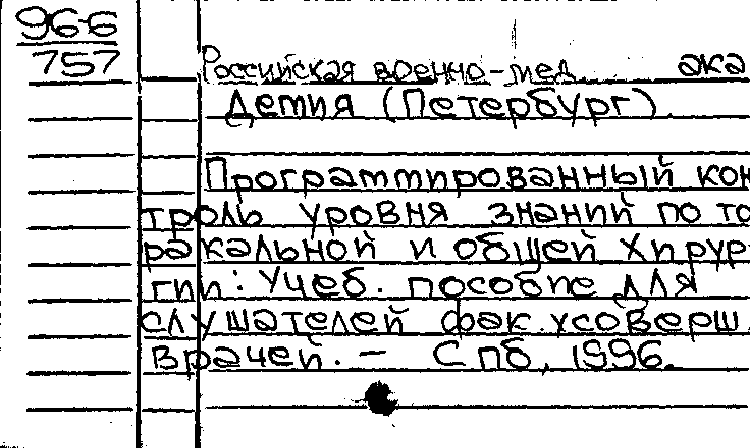 96-6
757
Российская военно-мед. ака
демия (Петербург).
Программированный кон
троль уровня знаний по то
ракальной и общей хирур
гии: Учеб. пособие для
слушателей фак. усоверш.
врачей. – СПб, 1996.